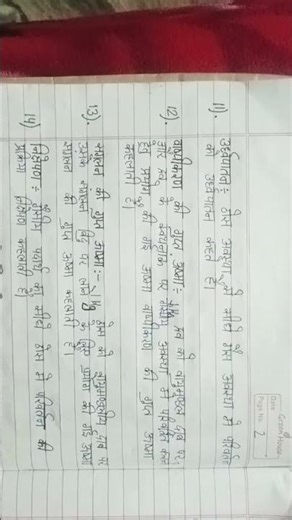 Green House
Date
Page No. 2
11). उर्ध्वपातन :- ठोस अवस्था से सीधे ठोस अवस्था में परिवर्तन
को उर्ध्वपातन कहते हैं।
12). वाष्पीकरण की गुप्त ऊष्मा :- 1 kg द्रव को वायुमण्डलीय दाब पर,
और द्रव के क्वथनांक पर गैसीय अवस्था में परिवर्तन करने
हेतु प्रयोग की गई ऊष्मा वाष्पीकरण की गुप्त ऊष्मा
कहलाती है।
13). संगलन की गुप्त ऊष्मा :- 1 kg ठोस को वायुमण्डलीय दाब पर
उसके संगलन बिंदु पर लाने के लिए प्रयोग की गई ऊष्मा
संगलन की गुप्त ऊष्मा कहलाती है।
14) निक्षेपण :- गैसीय पदार्थ का सीधे ठोस में परिवर्तन की
प्रक्रिया निक्षेपण कहलाती है।